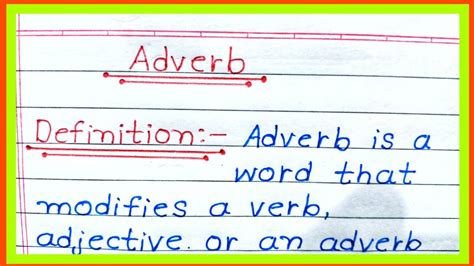 Adverb
Definition:- Adverb is a
word that
modifies a verb,
adjective. or an adverb